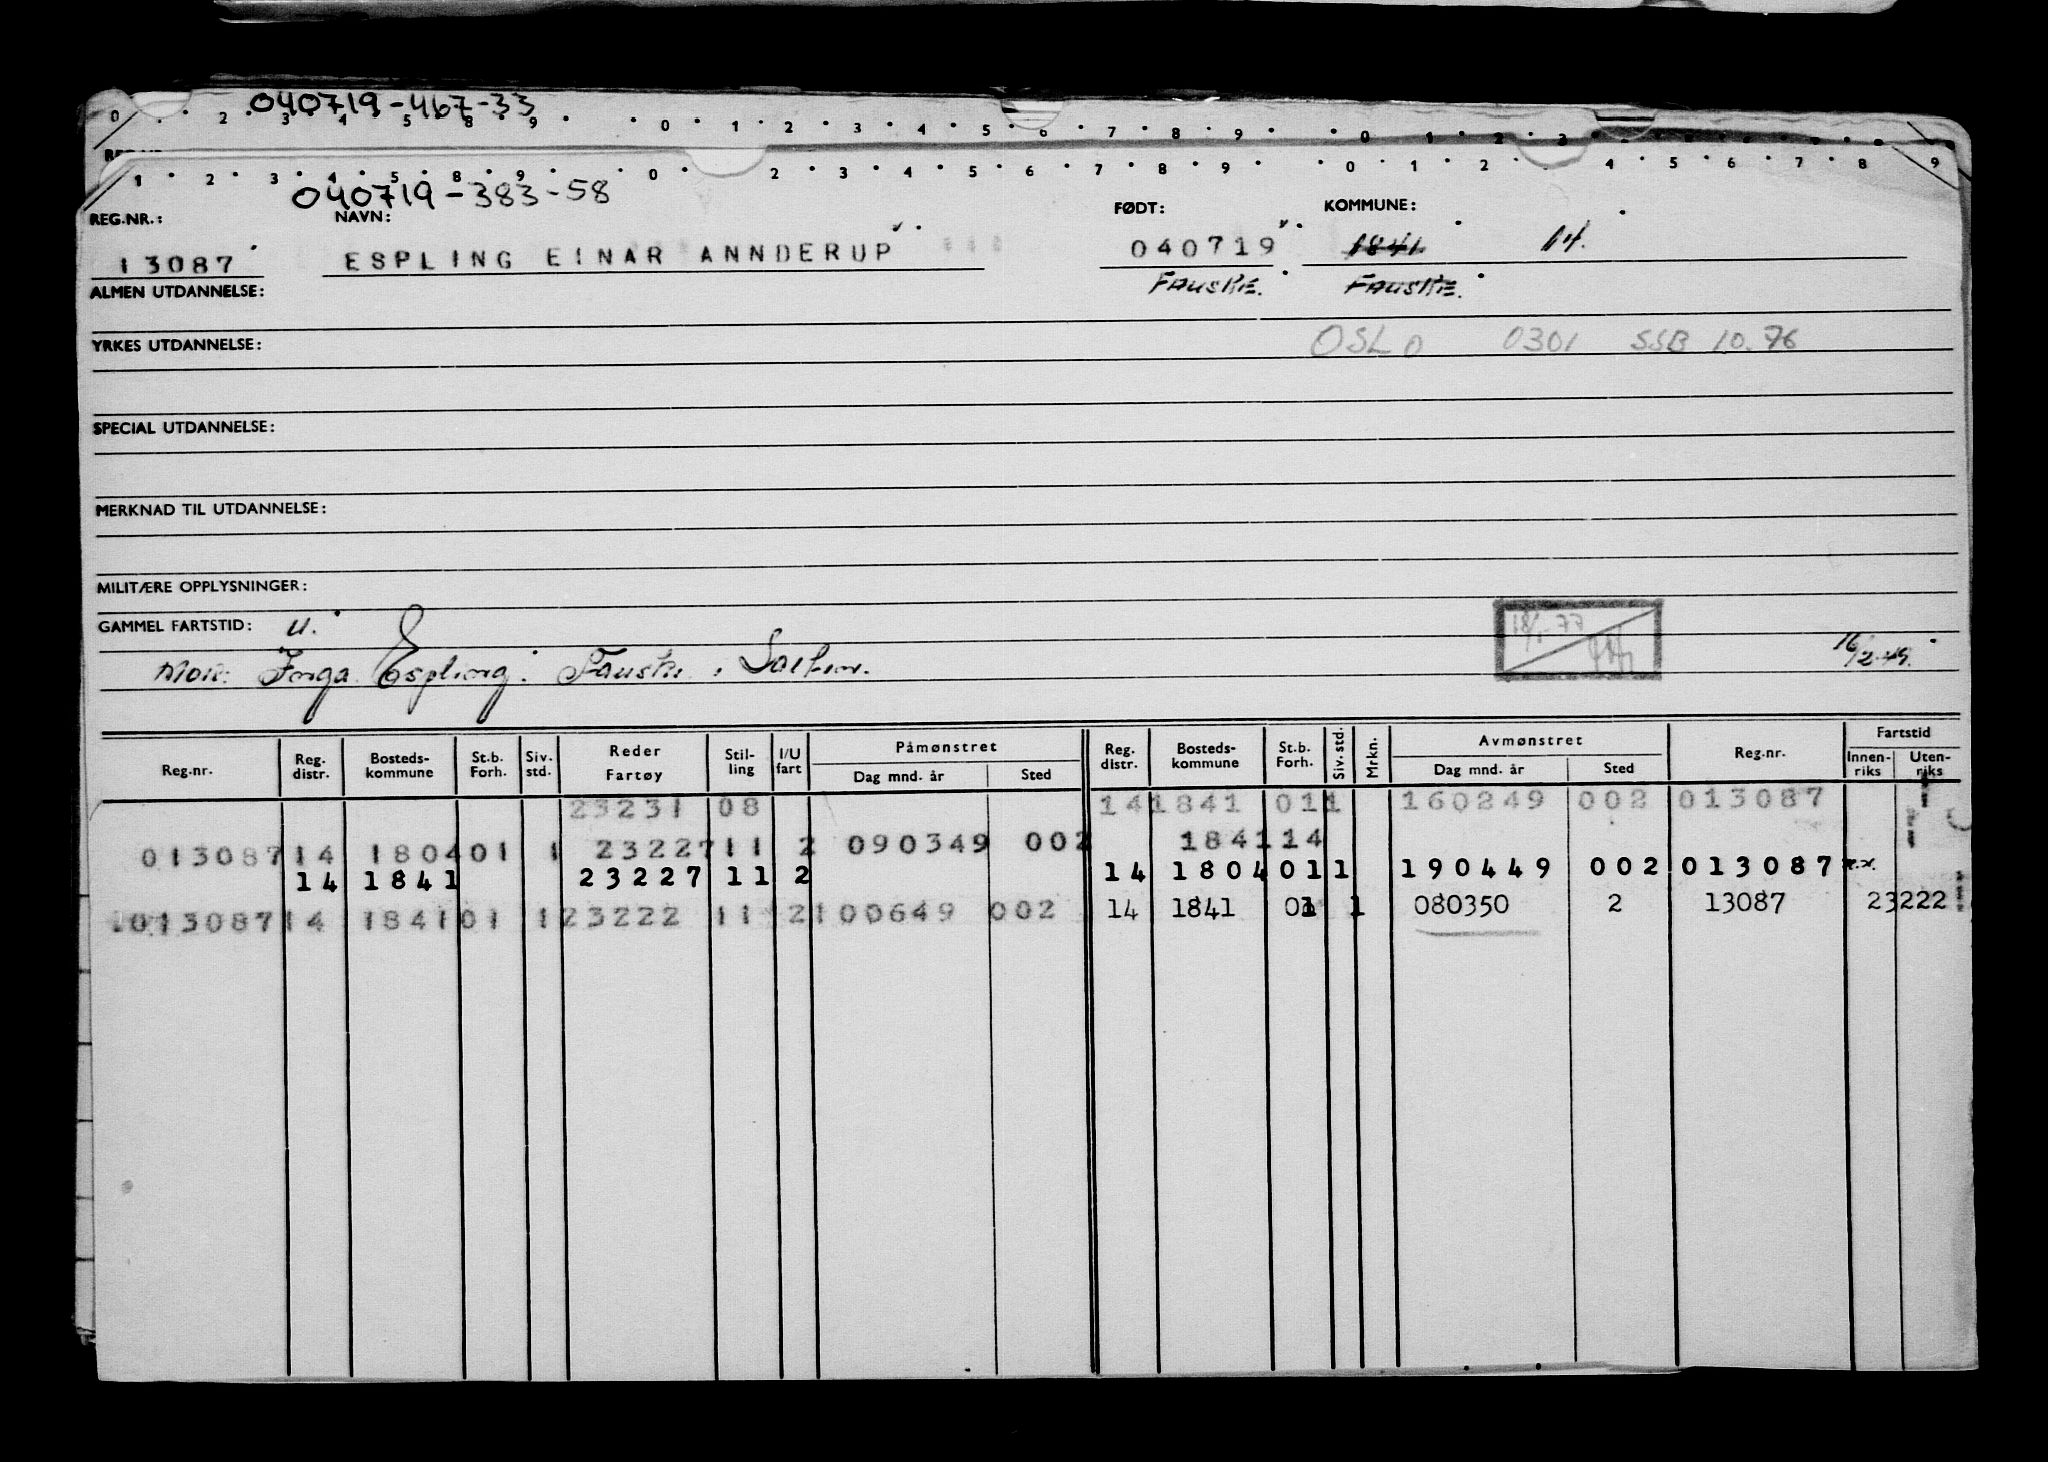 040719-467-33
0 . 2 3 4 5 8 9 . . 0 . 1 . 2 . 3 . 4 . 5 . 6 . 7 . 8 . 9 . . 0 . 1 . 2 . 3
1 . 2 . 3 . 4 . 5 . 8 . 9 . . 0 . 2 . 3 . 4 . 5 . 6 . 7 . 8 . 9 . . 0 . 1 . 2 . 4 . 5 . 6 . 7 . 8 . 9
040719-383-58
REG.NR.: NAVN: FØDT: KOMMUNE:
13087 ESPLING EINAR ANNDERUP 040719 1841 14.
FAUSKE. FAUSKE.
ALMEN UTDANNELSE:
YRKES UTDANNELSE: OSLO 0301 SSB 10.76
SPECIAL UTDANNELSE:
MERKNAD TIL UTDANNELSE:
MILITÆRE OPPLYSNINGER:
GAMMEL FARTSTID: U.
18/1-77
Mor: Inga Espling. Fauske i Salten. 16/2-49.
Reg.nr. Reg. distr. Bosteds-kommune St.b. Forh. Siv. std. Reder Fartøy Stil-ling I/U fart Påmønstret Dag mnd. år Sted Reg. distr. Bosteds-kommune St.b. Forh. Siv. std. Mrkn. Avmønstret Dag mnd. år Sted Reg.nr. Fartstid Innen-riks Uten-riks
23231 08 14 1841 01 1 160249 002 013087
013087 14 1804 01 1 23227 11 2 090349 002 1841 14
14 1841 23227 11 2 14 1804 01 1 190449 002 013087 x.x.
013087 14 1841 01 1 23222 11 2 100649 002 14 1841 01 1 080350 2 13087 23222